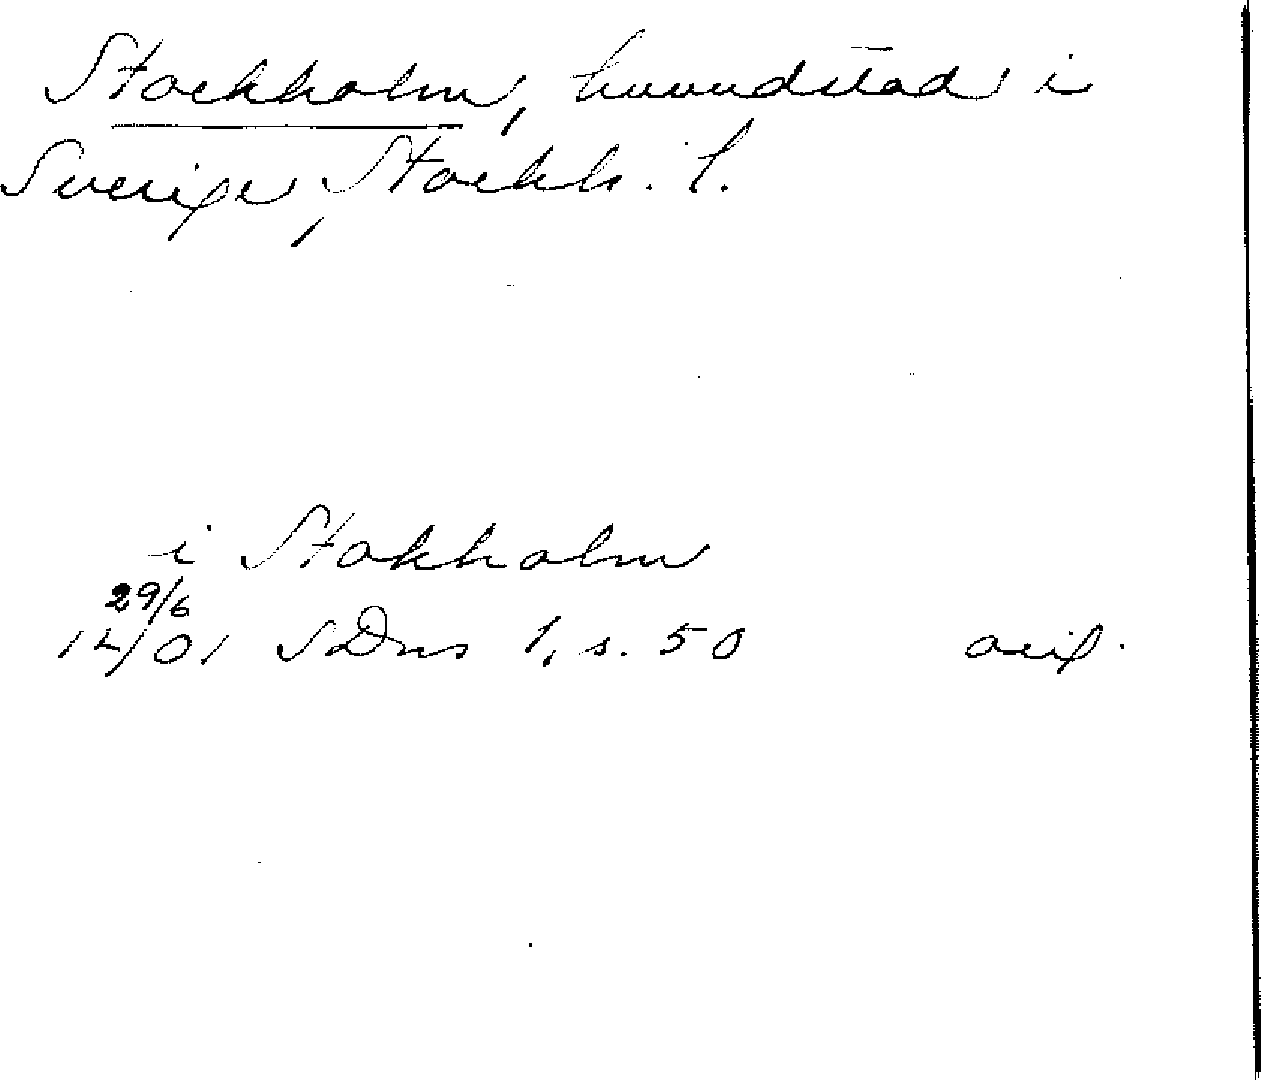 Stockholm, huvudstad i
Sverige, Stockh. l.
i Stokholm
29/6
14/01 SDns 1, s. 50 orig.